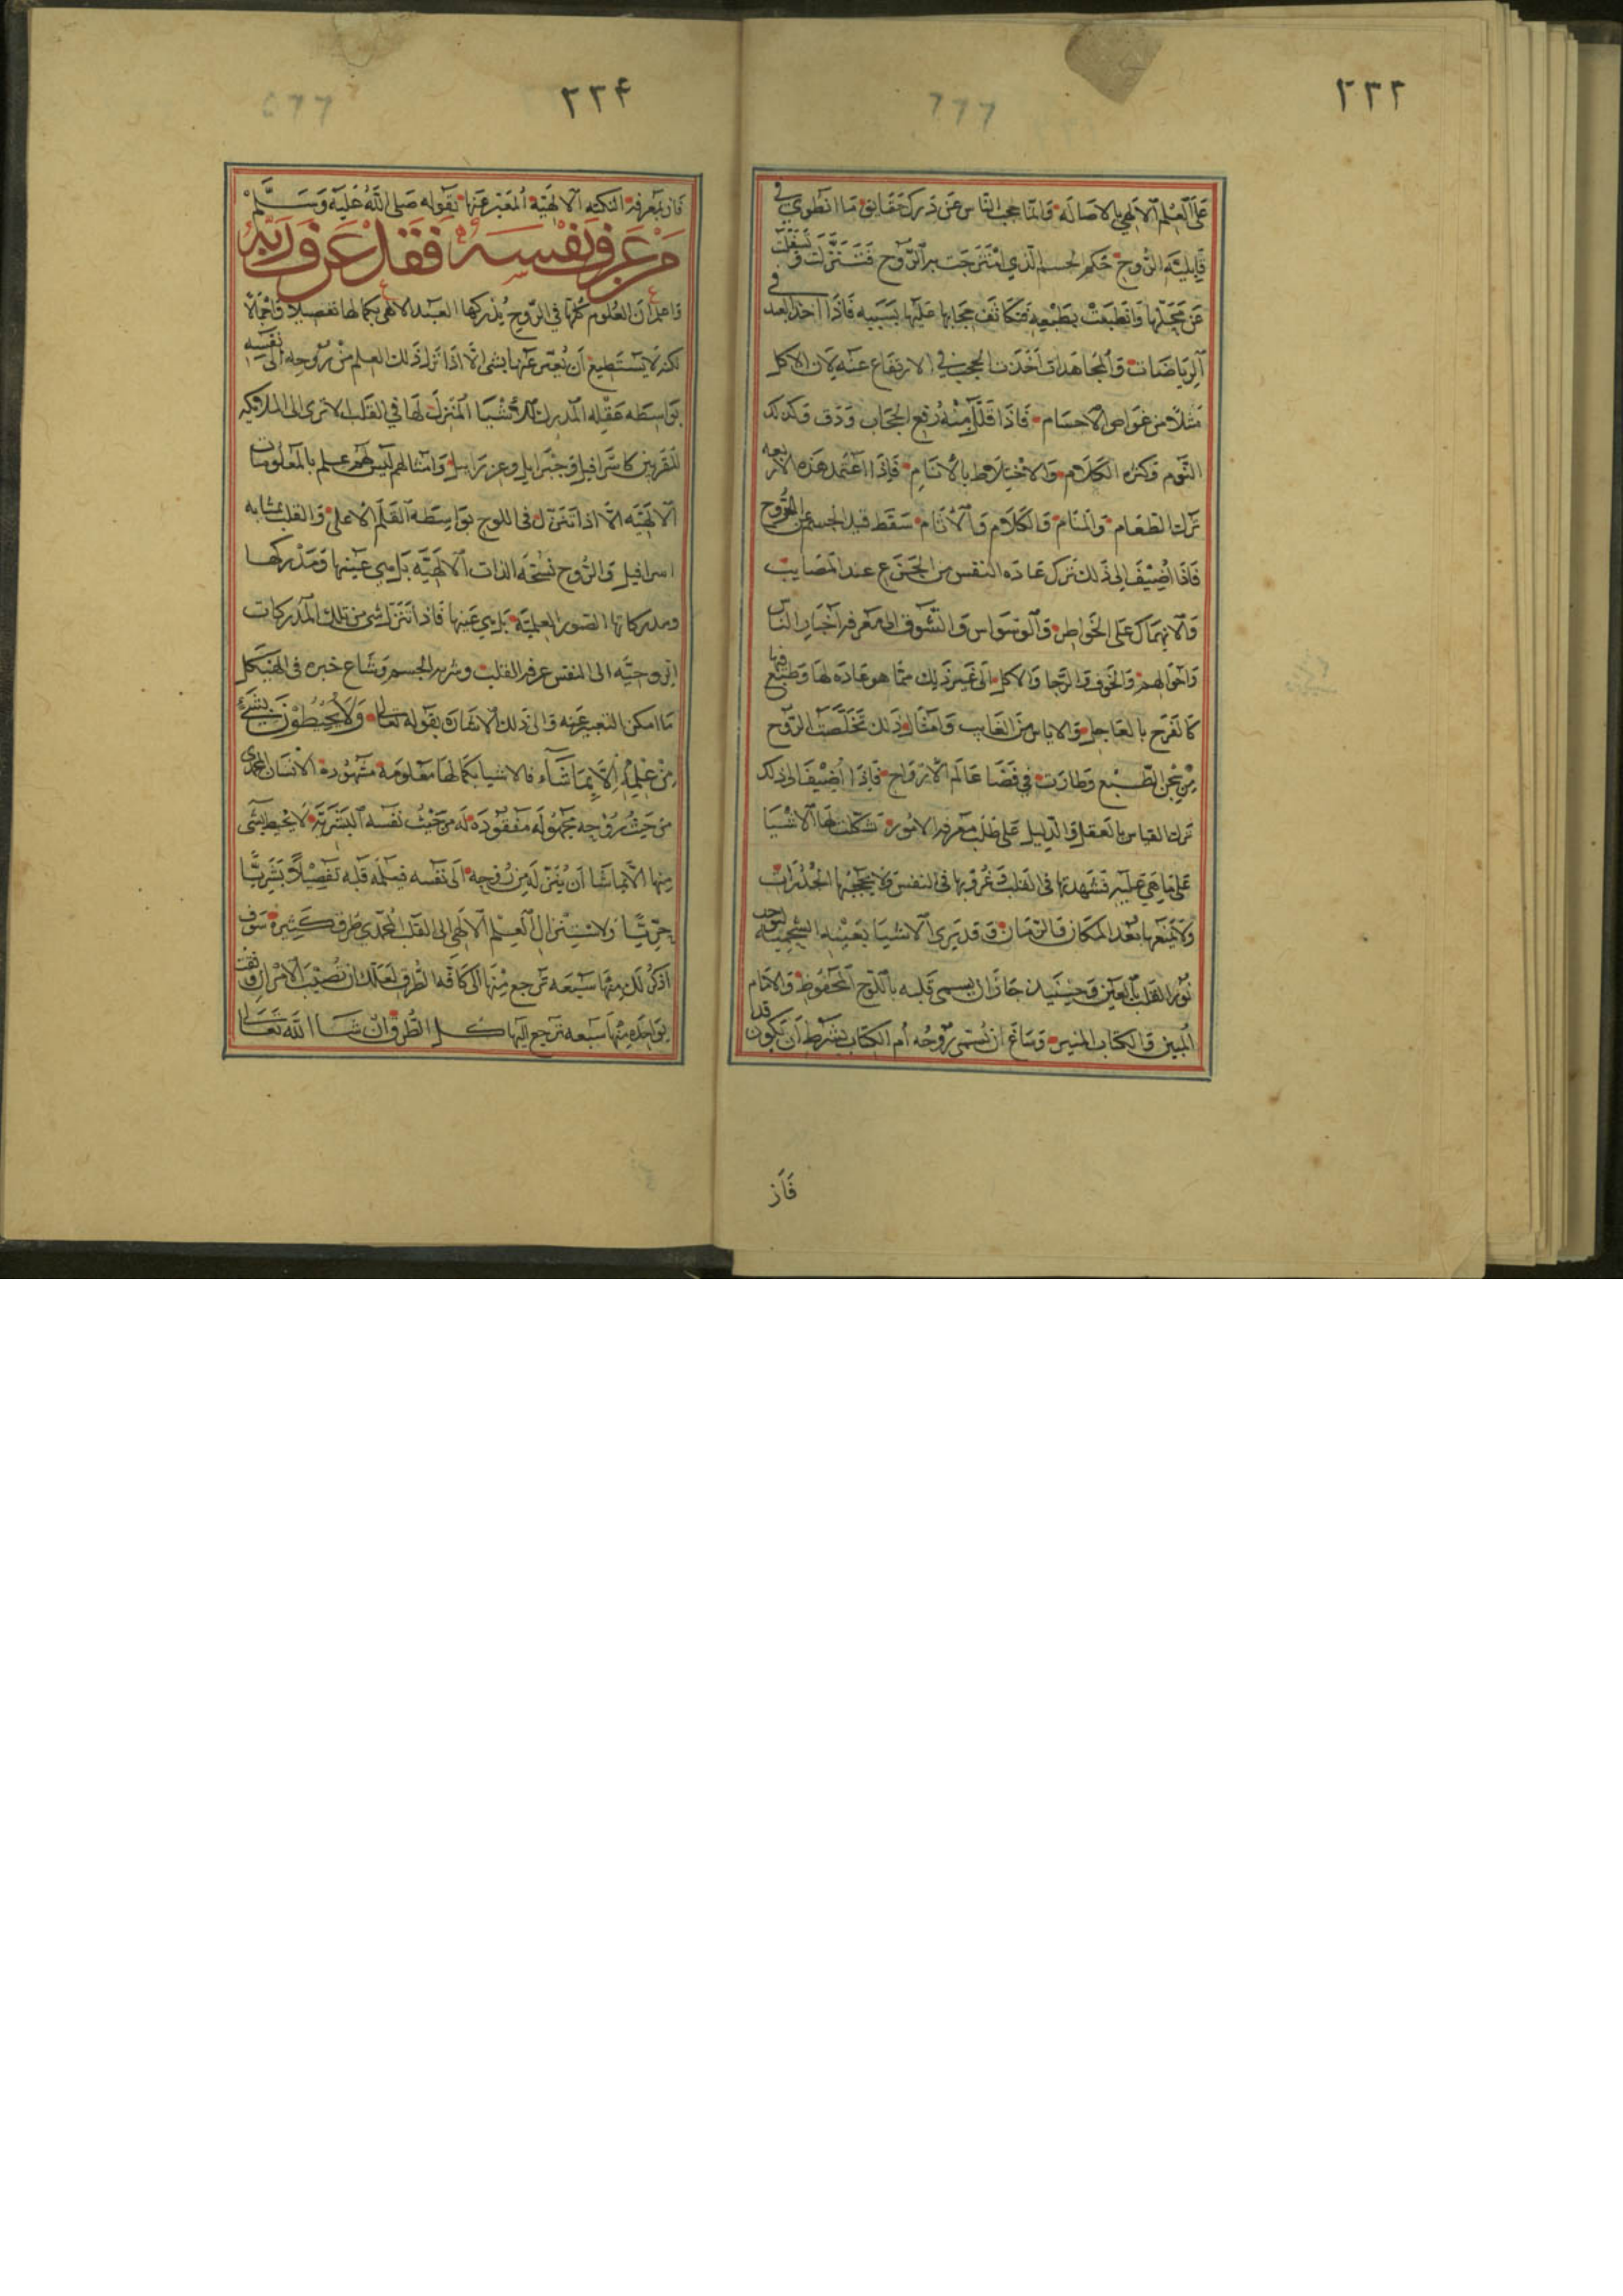 ٢٣٣
على العلم الالهي بالاصاله وانما حجب الناس عن درك حقايق ما انطوي في
قابليته الروح حكم الجسم الذي امتزجت به الروح فتنزلت وتسفلت
عن محتدها وانطبعت بطبعه فتكاثف حجابها عليها بسببه فاذا اخذ العبد في
الرياضات والمجاهدات اخذت الحجب في الارتفاع عنه لان الاكل
مثلا من خواص الاجسام فاذا قلل منه رفع الحجاب ودق وكذلك
النوم وكثره الكلام والاختلاط بالانام فاذا اعتمد هذه الاربعه
ترك الطعام والمنام والكلام والانام سقط قيد الجسم عن الروح
فاذا اضيف الى ذلك ترك عادة النفس من الجزع عند المصايب
والانهماك على الخواطر والوسواس والتشوف الى معرفة اخبار الناس
واحوالهم والخوف والرجا والاكل الى غير ذلك مما هو عادة لها وطبع فيها
كالفرح بالعاجل والاياس من الغايب وامثال ذلك تخلصت الروح
من سجن الطبع وطارت في فضا عالم الارواح فاذا اضيف الى ذلك
ترك القياس بالعقل والدليل على طلب معرفة الامور تشكلت لها الاشيا
على ما هي عليه فشهدتها في القلب وعرفتها في النفس ولا يحجبها الجدرات
ولا يمنعها بعد المكان والزمان وقد يري الاشيا بعينه الشحمية لتوحد
نور القلب بالعين وحينيذ جاز ان يسمى قلبه باللوح المحفوظ والامام
المبين والكتاب المنير وساغ ان تسمى روحه ام الكتاب بشرط ان تكون قد
فاز
٢٣٤
فاز بمعرفة النكته الالهية المعبر عنها بقوله صلى الله عليه وسلم
من عرف نفسه فقد عرف ربه
واعلم ان العلوم كلها في الروح يدركها العبد الالهى بكمالها تفصيلا واجمالا
لكنه لا يستطيع ان يعبر عنها بشى الا اذا نزل ذلك العلم من روحه الى نفسه
بواسطه عقله المدرك للاشيا المنزل لها في القلب الا ترى الى الملايكه
المقربين كاسرافيل وجبرايل وعزراييل وامثالهم ليس لهم علم بالمعلومات
الالهيه الا اذا تنزل في اللوح بواسطه القلم الاعلى والقلب بمثابه
اسرافيل والروح نسخه الذات الالهيه بل هي عينها ومدركها
ومدركاتها الصور العلمية بل هي عينها فاذا تنزل شي من تلك المدركات
الروحيه الى النفس عرفه القلب وشربه الجسم وشاع خبره في الهيكل
ما امكن التعبير عنه والى ذلك الاشاره بقوله تعالى ولا يحيطون بشيء
من علمه الا بما شاء فالاشيا بكمالها معلومة مشهورة الانسان المحمدي
من حيث روحه مجهوله مفقوده له من حيث نفسه البشريه لا يحيط بشى
منها الا بما شا ان ينزله من روحه الى نفسه فيعلمه قلبه تفصيلا بشريا
جزيا ولاستنزال العلم الالهي الى القلب المحمدي طرق كثيرة سوف
اذكر لك منها سبعه ترجع منها الى كافه الطرق لعلك ان تصيب الامر ان وثقت
بواحده منها سبعه ترجع اليها كل الطرق ان شا الله تعالى